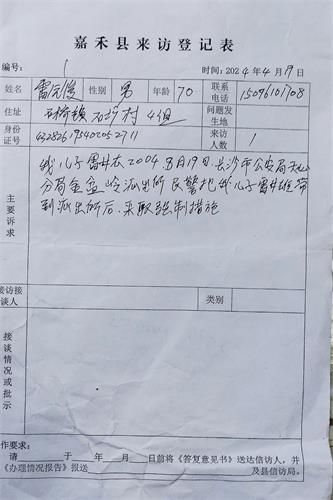 嘉禾县来访登记表
编号： 1 时间：2024年4月19日
姓名 雷元俊 性别 男 年龄 70 联系电话 15096101708
住址 石桥镇石沙村4组 问题发生地
身份证号 432826195402052711 来访人数 1
主要诉求
我儿子雷井太2004 3月19日长沙市公安局天心
分局金盆岭派出所民警把我儿子雷井雄带
到派出所后，采取强制措施
接访接谈人 类别
接谈情况或批示
作要求：
请 于 年 月 日前将《答复意见书》送达信访人，并
《办理情况报告》报送 及县信访局。